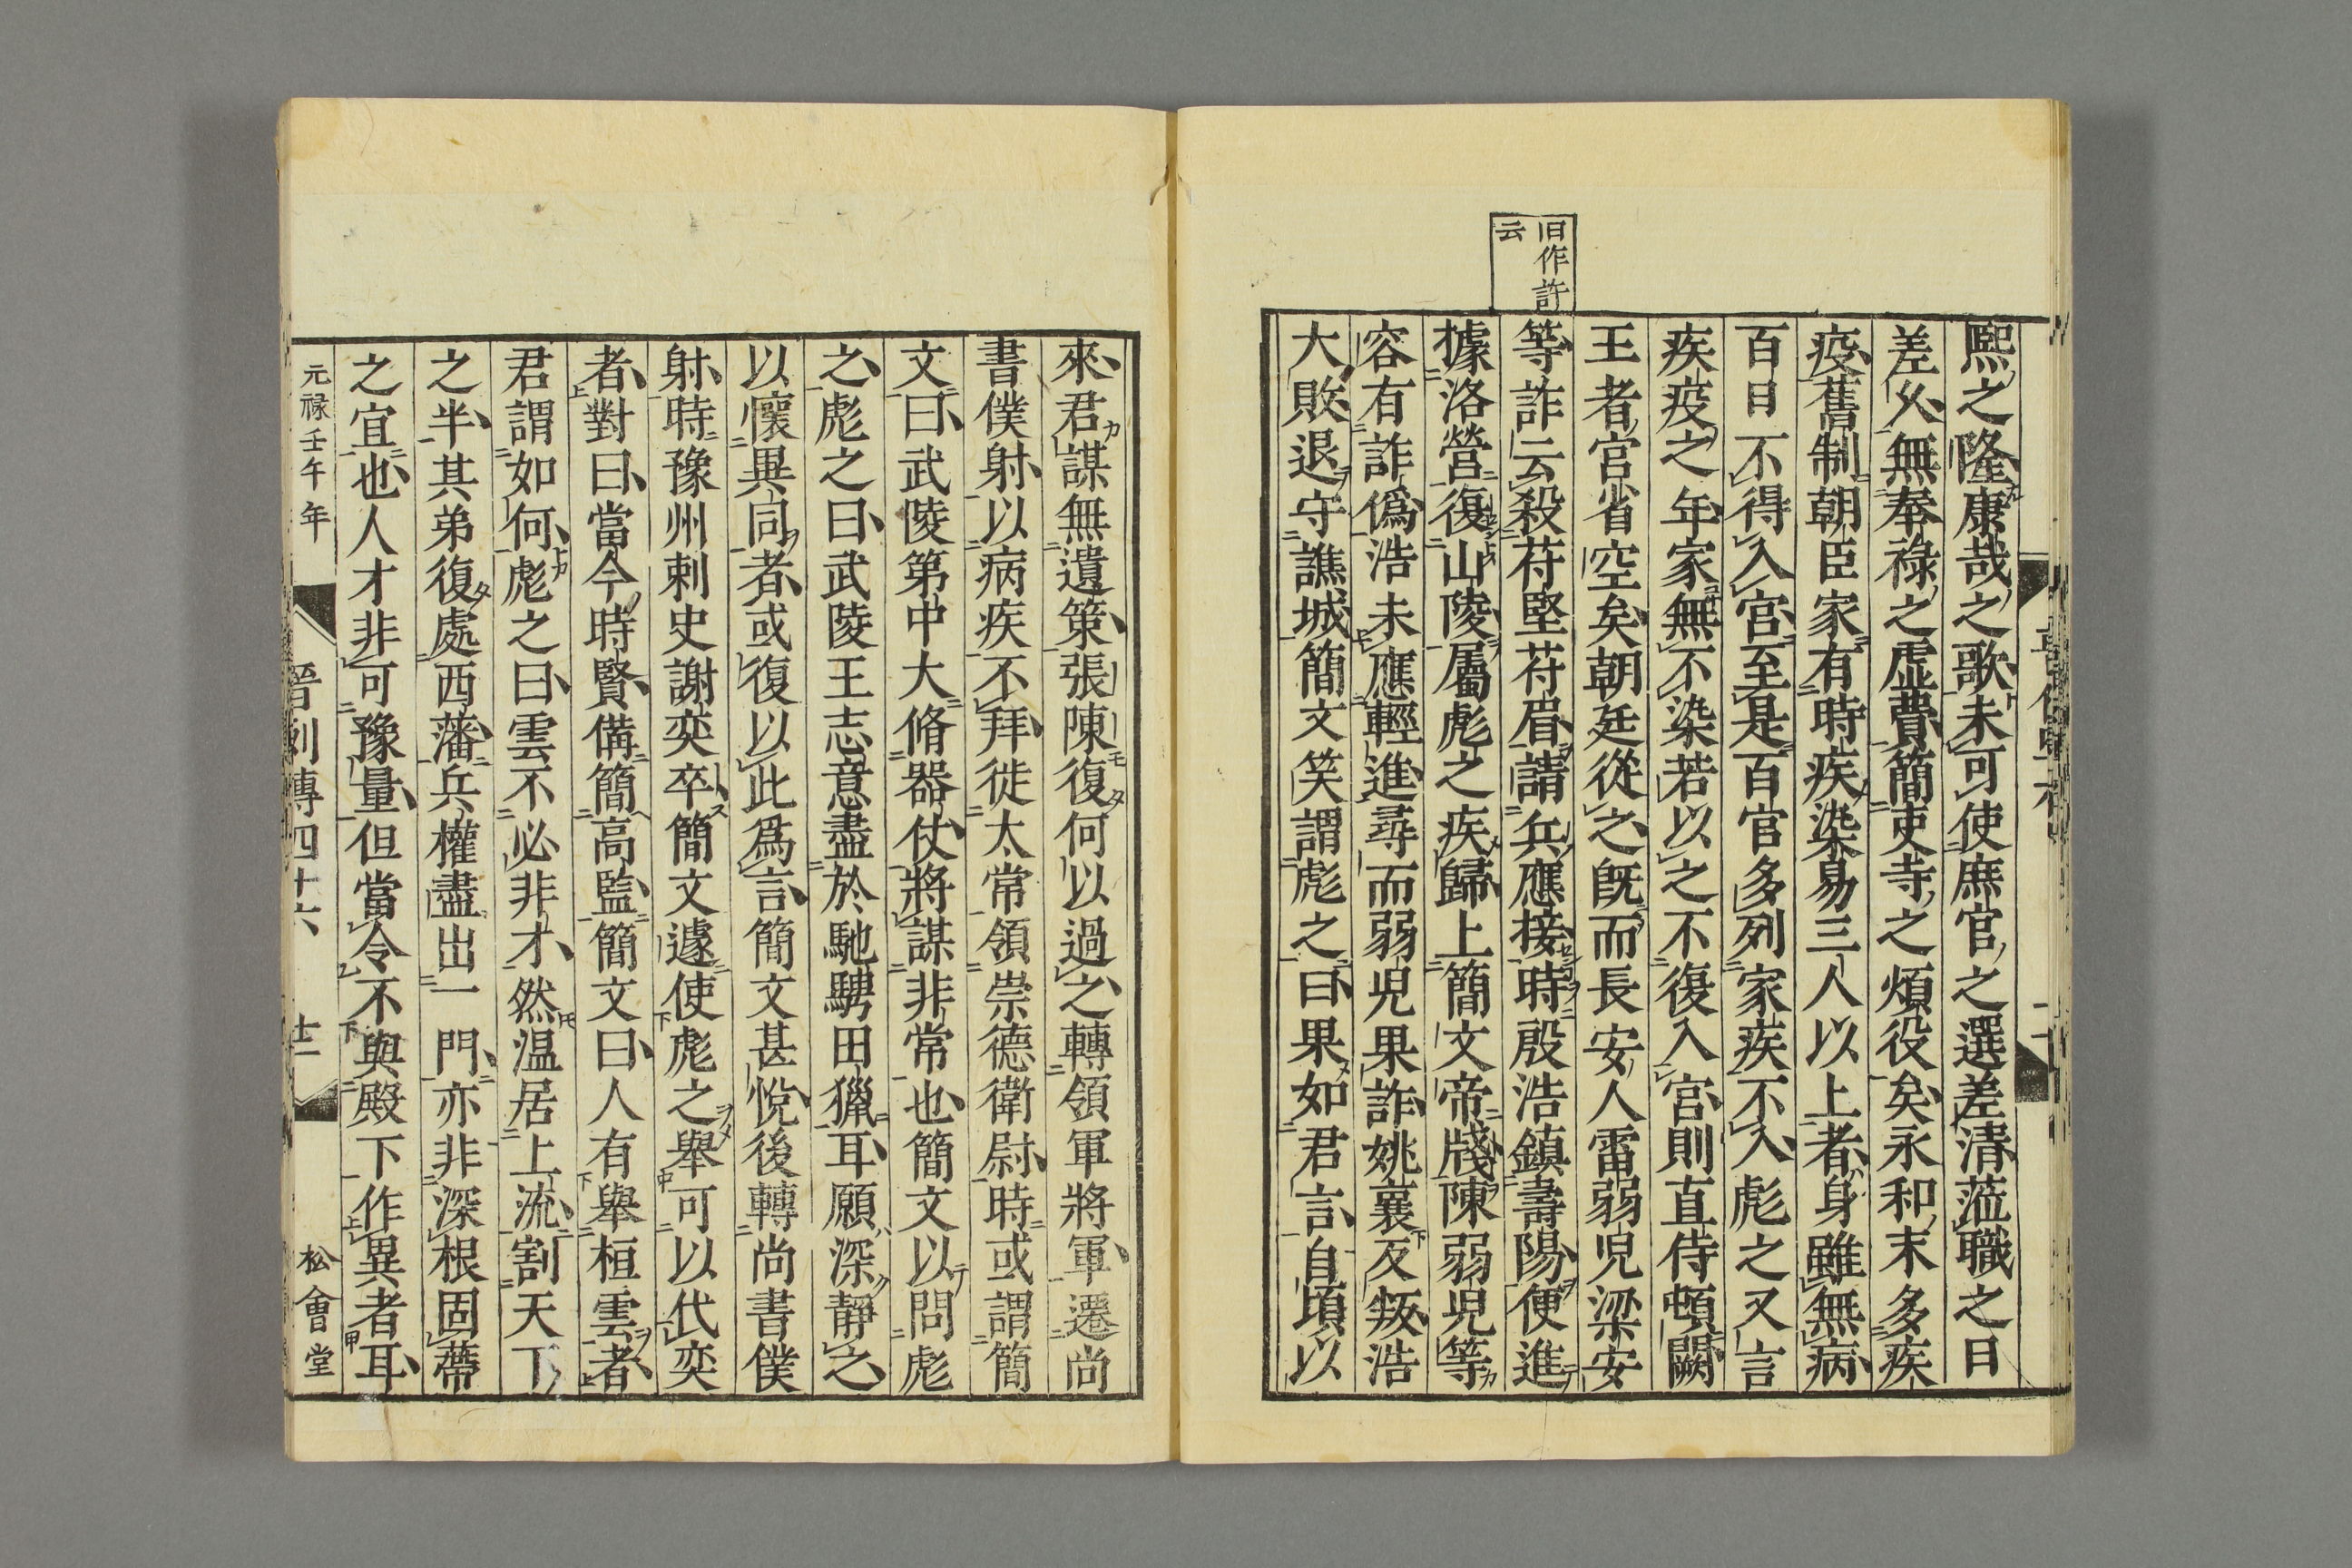 旧作許
云
熙之隆康哉之歌未可使庶官之選差清蒞職之日
差乆無奉祿之虛費簡吏寺之煩役矣永和末多疾
疫舊制朝臣家有時疾染易三人以上者身雖無病
百日不得入宮至是百官多列家疾不入彪之又言
疾疫之年家無不染若以之不復入宮則直侍頓闕
王者官省空矣朝廷從之既而長安人雷弱兒梁安
等詐云殺苻堅苻眉請兵應接時殷浩鎮壽陽便進
據洛營復山陵屬彪之疾歸上簡文帝牋陳弱兒等
容有詐偽浩未應輕進尋而弱兒果詐姚襄反叛浩
大敗退守譙城簡文笑謂彪之曰果如君言自頃以
來君謀無遺策張陳復何以過之轉領軍將軍遷尚
書僕射以病疾不拜徙太常領崇德衛尉時或謂簡
文曰武陵第中大脩器仗將謀非常也簡文以問彪
之彪之曰武陵王志意盡於馳騁田獵耳願深靜之
以懷異同者或復以此爲言簡文甚悅後轉尚書僕
射時豫州刺史謝奕卒簡文遽使彪之舉可以代奕
者對曰當今時賢備簡高監簡文曰人有舉桓雲者
君謂如何彪之曰雲不必非才然温居上流割天下
之半其弟復處西藩兵權盡出一門亦非深根固蔕
之宜也人才非可豫量但當令不與殿下作異者耳
元禄壬午年 晉列傳四十六 十一 松會堂